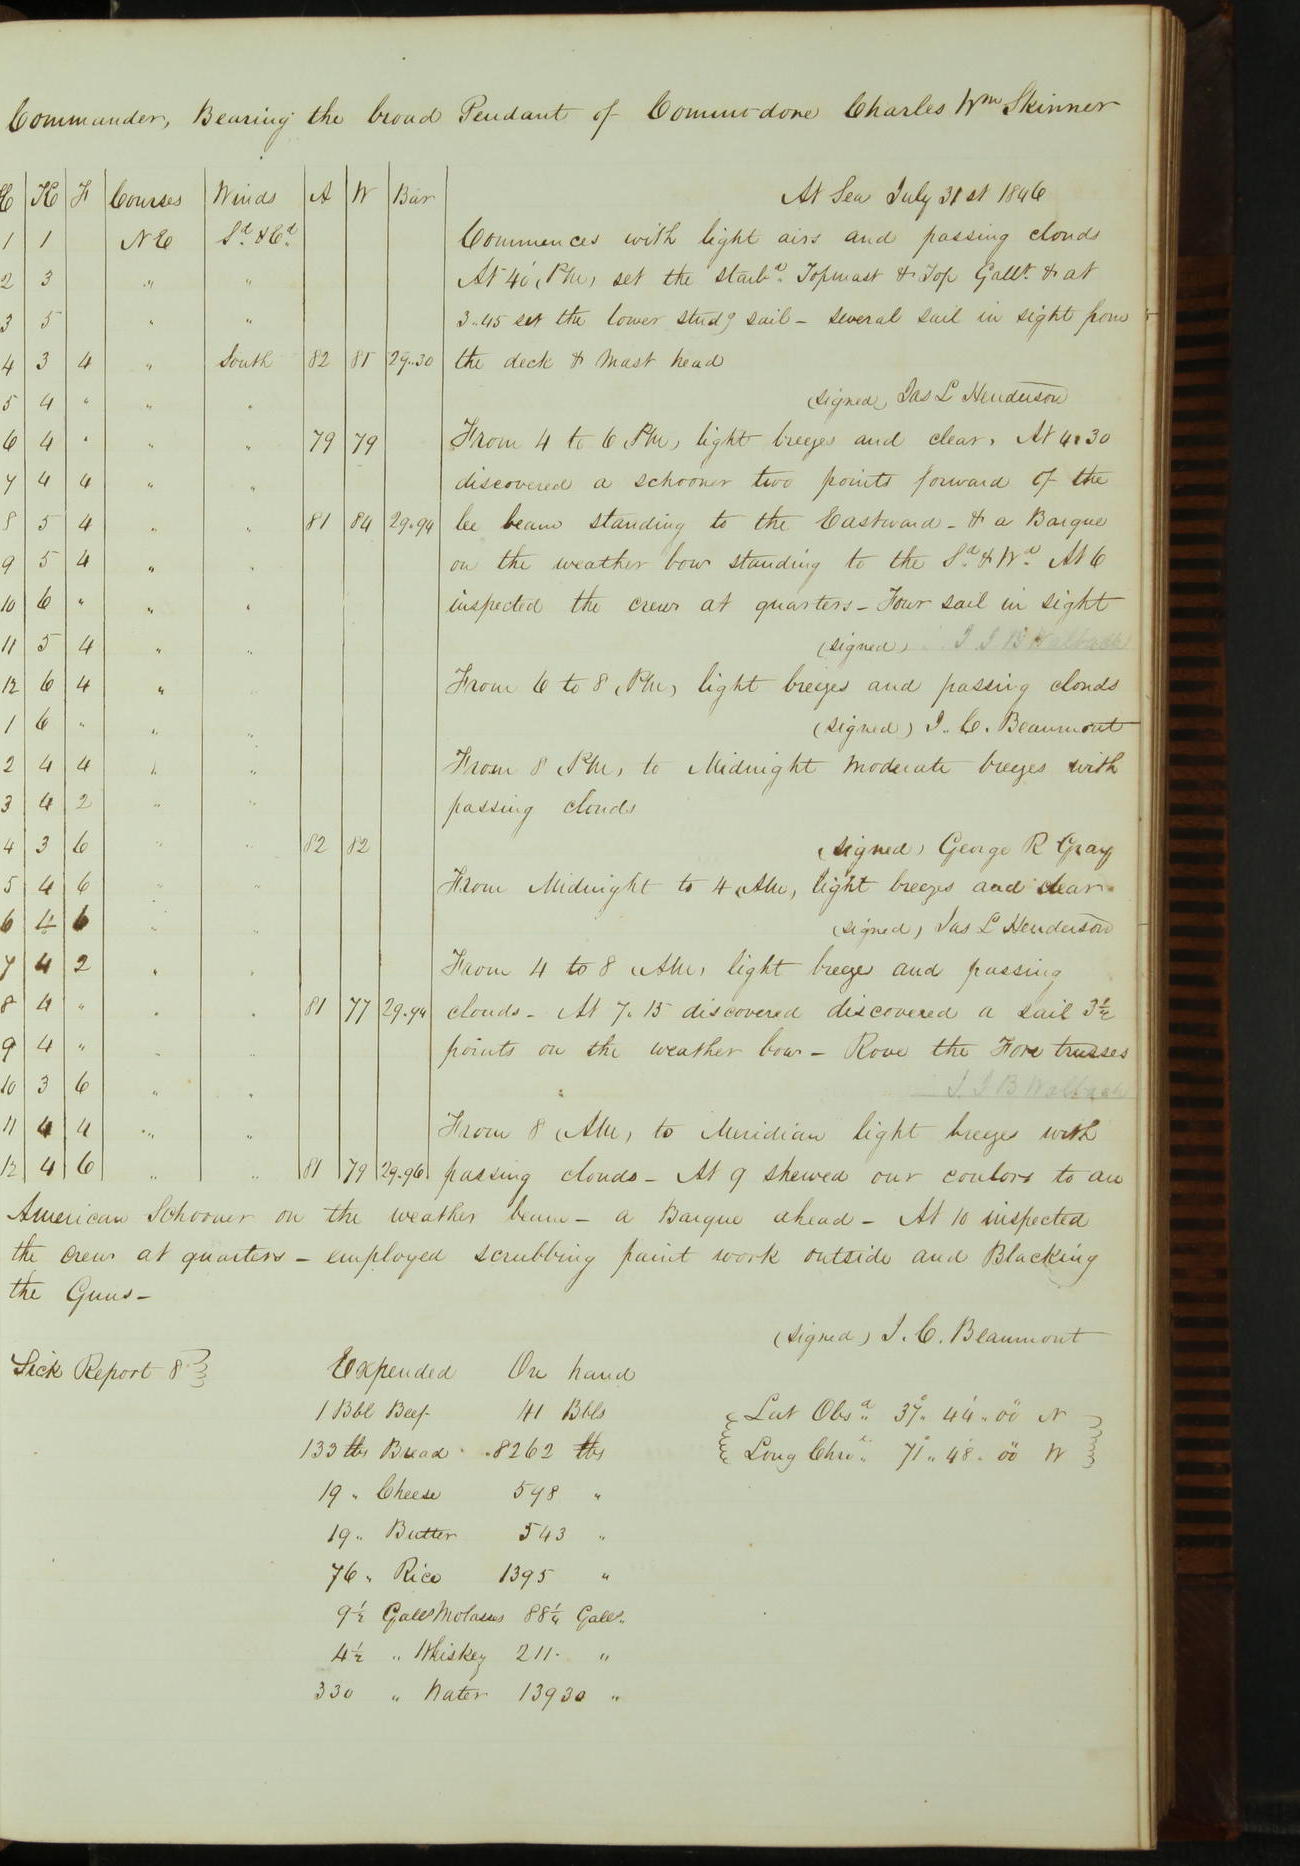 Commander, Bearing the broad Pendant of Commodore Charles Wm Skinner
H K F Courses Winds A W Bar At Sea July 31st 1846
1 1 NE Sd & Ed Commences with light airs and passing clouds
2 3 " " At 40' PM, set the starbd Topmast & Top Gallt & at
3 5 " " 3..45 set the lower studg sail - several sail in sight from
4 3 4 " South 82 81 29..30 the deck & Mast head
5 4 " " " (signed) Jas L Henderson
6 4 " " " 79 79 From 4 to 6 PM, light breezes and clear. At 4.30
7 4 4 " " discovered a schooner two points forward of the
8 5 4 " " 81 84 29.94 lee beam standing to the Eastward - & a Barque
9 5 4 " " on the weather bow standing to the Sd & Wd At 6
10 6 " " " inspected the crew at quarters - Four sail in sight
11 5 4 " " (signed) J J B Walbach
12 6 4 " " From 6 to 8 PM, light breezes and passing clouds
1 6 " " " (signed) J. C. Beaumont
2 4 4 " " From 8 PM, to Midnight moderate breezes with
3 4 2 " " passing clouds
4 3 6 " " 82 82 (signed) George R Gray
5 4 6 " " From Midnight to 4 AM, light breezes and clear
6 4 6 " " (signed) Jas L Henderson
7 4 2 " " From 4 to 8 AM, light breezes and passing
8 4 " " " 81 77 29.94 clouds - At 7.15 discovered discovered a sail 3½
9 4 " " " points on the weather bow - Rove the Fore trusses
10 3 6 " " J J B Walbach
11 4 4 " " From 8 AM, to Meridian light breezes with
12 4 6 " " 81 79 29.96 passing clouds - At 9 shewed our coulors to an
American Schooner on the weather beam - a Barque ahead - At 10 inspected
the crew at quarters - employed scrubbing paint work outside and Blacking
the Guns -
(signed) J. C. Beaumont
Sick Report 8
Expended On hand
1 Bbl Beef 41 Bbls
133 lbs Bread 8262 lbs
19 " Cheese 598 "
19 " Butter 543 "
76 " Rice 1395 "
9½ Galls Molasses 88¼ Galls
4½ " Whiskey 211 "
330 " Water 13930 "
Lat Obsd 37° 44' 00" N
Long Chro 71° 48' 00" W